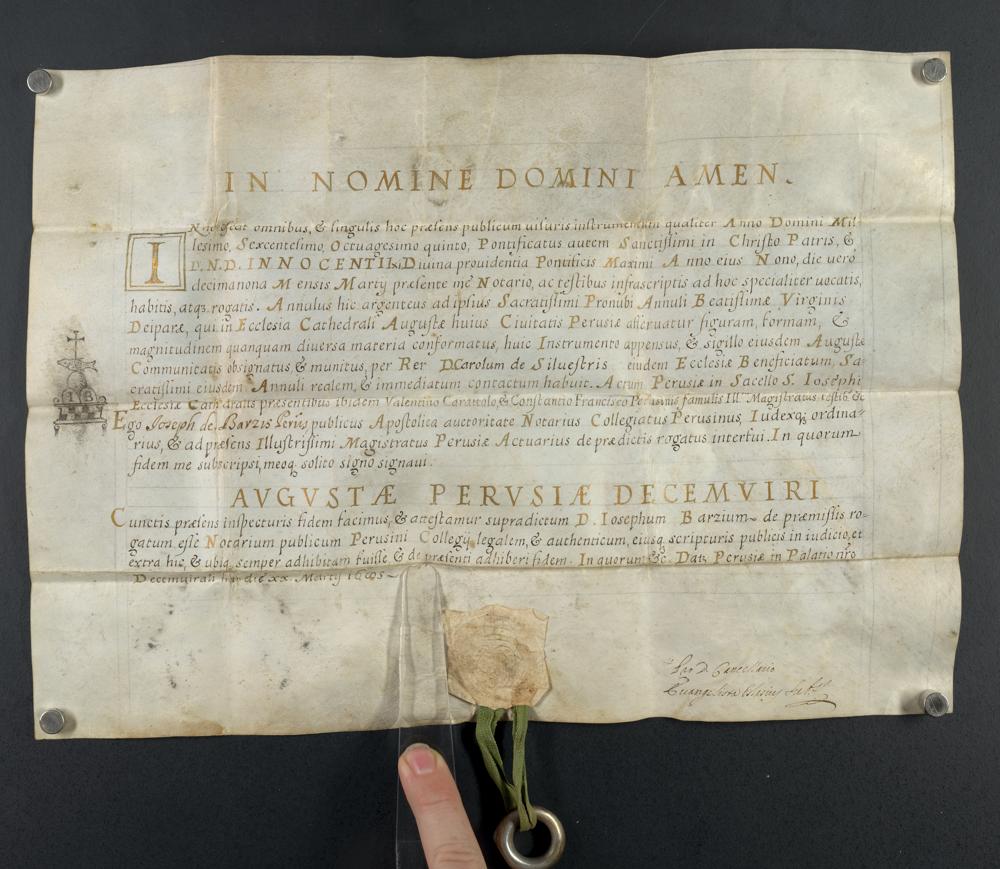 IN NOMINE DOMINI AMEN.
omnibus, & singulis hoc præsens publicum uisuris instrumentum qualiter Anno Domini Mil-
lesimo, Sexcentesimo, Octuagesimo quinto, Pontificatus autem Sanctissimi in Christo Patris, &
I D.N.D. INNOCENTII xi Diuina prouidentia Pontificis Maximi Anno eius Nono, die uero
decimanona Mensis Martij præsente me Notario, ac testibus infrascriptis ad hoc specialiter uocatis,
habitis, atq; rogatis. Annulus hic argenteus ad ipsius Sacratissimi Pronubi Annuli Beatissimæ Virginis
Deiparæ, qui in Ecclesia Cathedrali Augustæ huius Ciuitatis Perusiæ asseruatur figuram, formam, &
magnitudinem quanquam diuersa materia conformatus, huic Instrumento appensus, & sigillo eiusdem Augustæ
Communitatis obsignatus, & munitus, per Rer D. Carolum de Siluestris eiusdem Ecclesiæ Beneficiatum, Sa-
cratissimi eiusdem Annuli realem, & immediatum contactum habuit. Actum Perusiæ in Sacello S. Iosephi
Ecclesiæ Cathedralis præsentibus ibidem Valentino & Constantio Francisco famulis Ill. Magistratus testib. &c
IB
Ego Joseph de Barzis Perus publicus Apostolica auctoritate Notarius Collegiatus Perusinus, Iudexq; ordina-
rius, & ad præsens Illustrissimi Magistratus Perusiæ Actuarius de prædictis rogatus interfui. In quorum
fidem me subscripsi, meoq. solito signo signaui.
AVGVSTÆ PERVSIÆ DECEMVIRI
Cunctis præsens inspecturis fidem facimus, & attestamur supradictum D. Iosephum Barzium de præmissis ro-
gatum esse Notarium publicum Perusini Collegij, legalem, & authenticum, eiusq. scripturis publicis in iudicio, et
extra hic, & ubiq. semper adhibitam fuisse, & de præsenti adhiberi fidem. In quorum &c. Dat. Perusiæ in Palatio nro
Decemuirali hac die xx. Martij 1685
Cancellario